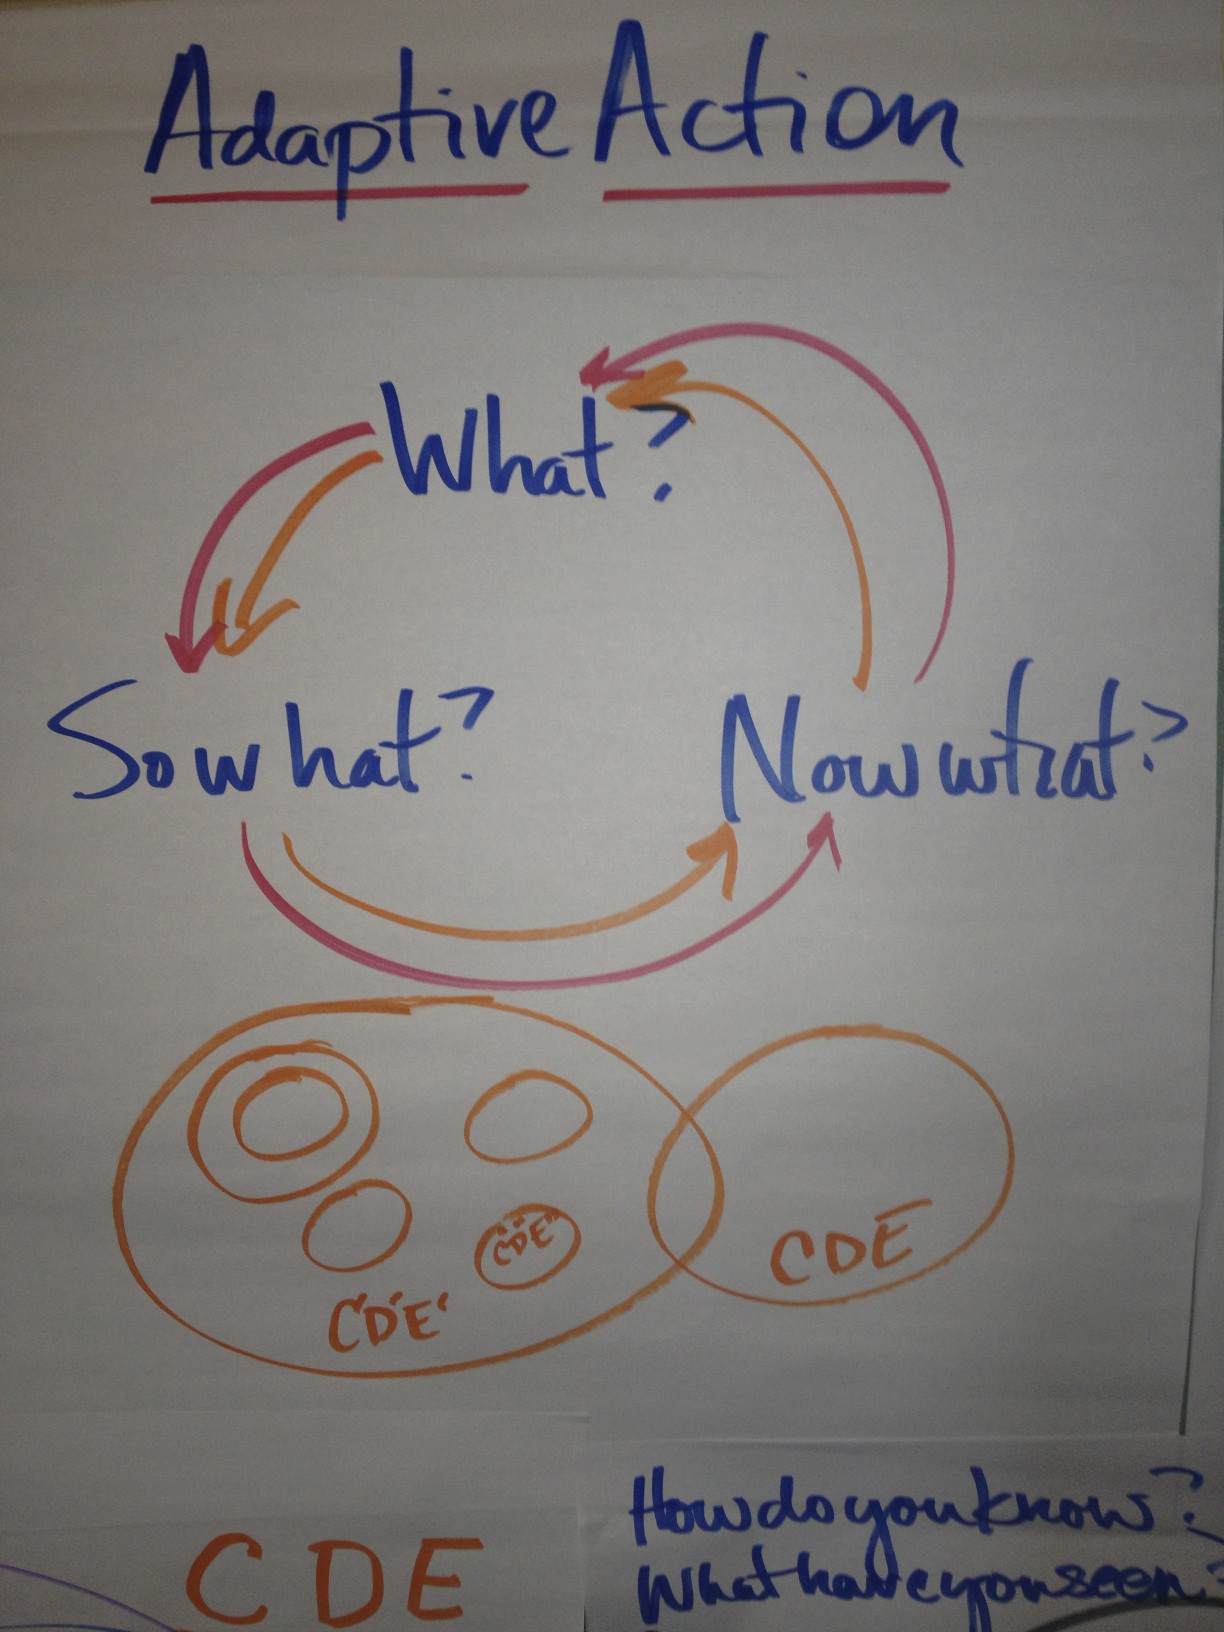 Adaptive Action
What?
So what?
Now what?
C"D"E"
CDE
C'D'E'
CDE
How do you know?
What have you seen?